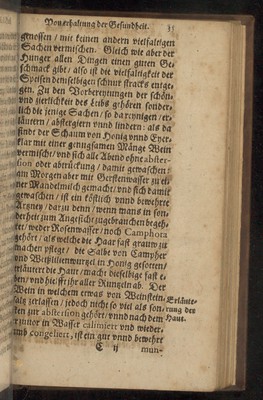 Von erhaltung der Gesundheit.
genossen / mit keinen andern vielfaltigen
Sachen vermischen. Gleich wie aber der
Hunger allen Dingen einen guten Ge-
schmack gibt / also ist die vielfaltigkeit der
Speisen demselbigen schnur stracks entge-
gen. Zu den Vorbereytungen der schön-
vnd zierlichkeit des Leibs gehören sonder-
lich die jenige Sachen / so da reynigen / er-
läutern / abstergiern vnnd lindern: als da
sind der Schaum von Honig vnnd Eyer-
klar mit einer genugsamen Mänge Wein
vermischt / vnd sich alle Abend ohne abster-
sion oder abtrückung / damit gewaschen /
am Morgen aber mit Gerstenwasser zu ei-
ner Mandelmilch gemacht / vnd sich damit
gewaschen / ist ein köstlich vnnd bewehrte
Artzney / dar zu denn / wenn wans in son-
derheit zum Angesicht zugebrauchen begeh-
/ weder Rosenwasser / noch Camphora
gehört / als welche die Haar fast graw zu
machen pflegt / die Salbe von Campher
vnd Weißlilienwurtzel in Honig gesotten /
erläutert die Haut / macht dieselbige fast e-
ben / vnd hilfft jhr aller Runtzeln ab. Der
Wein in welchem etwas von Weinstein /
saltz zerlassen / jedoch nicht so viel als son-
sten zur abstersion gehört / vnnd nach dem
in Wasser calimiert vnd wieder-
umb congeliert, ist ein gut vnnd bewehrt
C ij
mun-
Erläute-
rung der
Haut.